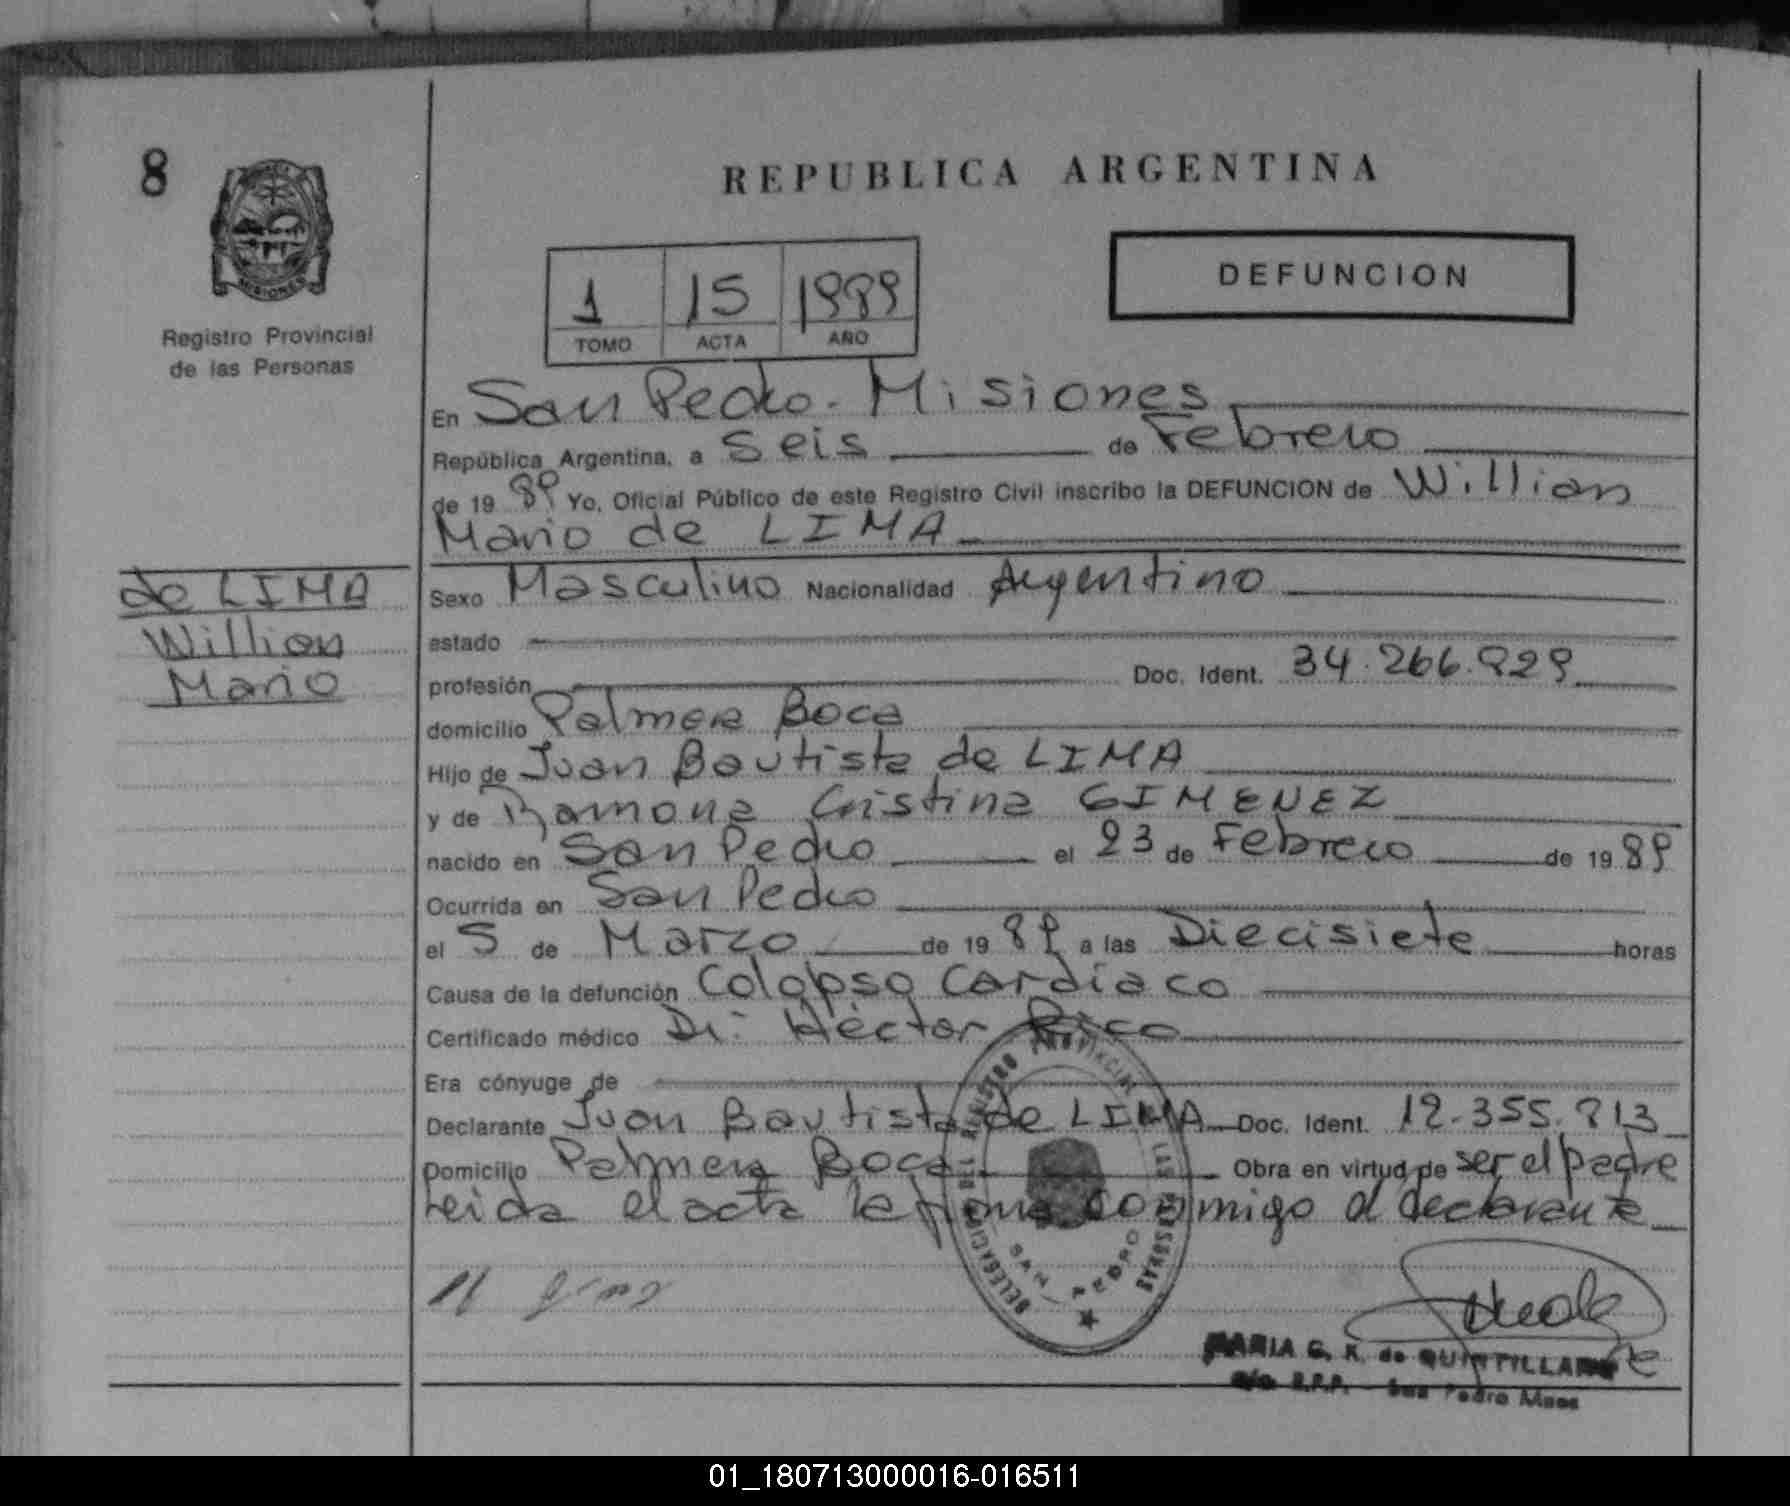 8
REPUBLICA ARGENTINA
MISIONES
Registro Provincial
de las Personas
1 15 1989
TOMO ACTA AÑO
DEFUNCION
En San Pedro - Misiones
República Argentina, a seis de Febrero
de 19 89 Yo, Oficial Público de este Registro Civil inscribo la DEFUNCION de Willian
Mario de LIMA
de LIMA
Willian
Mario
Sexo Masculino Nacionalidad Argentino
estado
profesión Doc. Ident. 34.266.929
domicilio Palmera Boca
Hijo de Juan Bautista de LIMA
y de Ramona Cristina GIMENEZ
nacido en San Pedro el 23 de Febrero de 19 89
Ocurrida en San Pedro
el 5 de Marzo de 19 89 a las Diecisiete horas
Causa de la defunción Colapso Cardíaco
Certificado médico Dr. Héctor Rico
Era cónyuge de
Declarante Juan Bautista de LIMA Doc. Ident. 12.355.813
Domicilio Palmera Boca Obra en virtud de ser el padre
Leida el acta la firma conmigo el declarante
DELEGACION DEL REGISTRO PROVINCIAL LAS PERSONAS
SAN PEDRO
MARIA G. K. de QUINTILLAN
R.P.P. San Pedro Mnes
01_180713000016-016511